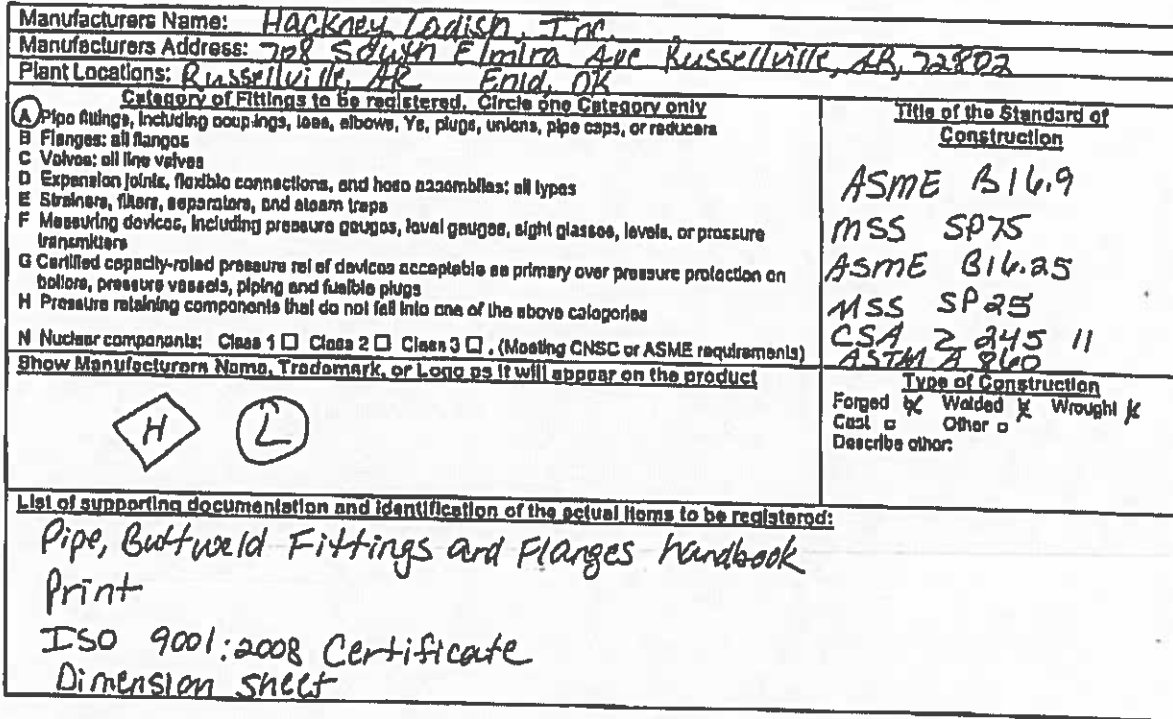 Manufacturers Name: Hackney Ladish, Inc.
Manufacturers Address: 708 South Elmira Ave Russellville, AR, 72802
Plant Locations: Russellville, AR Enid, OK
Category of Fittings to be registered. Circle one Category only
A Pipe fittings, including couplings, tees, elbows, Ys, plugs, unions, pipe caps, or reducers
B Flanges: all flanges
C Valves: all line valves
D Expansion joints, flexible connections, and hose assemblies: all types
E Strainers, filters, separators, and steam traps
F Measuring devices, including pressure gauges, level gauges, sight glasses, levels, or pressure
transmitters
G Certified capacity-rated pressure relief devices acceptable as primary over pressure protection on
boilers, pressure vessels, piping and fusible plugs
H Pressure retaining components that do not fall into one of the above categories
N Nuclear components: Class 1 ☐ Class 2 ☐ Class 3 ☐ . (Meeting CNSC or ASME requirements)
Title of the Standard of
Construction
ASME B16.9
MSS SP75
ASME B16.25
MSS SP25
CSA Z 245 11
ASTM A 860
Show Manufacturers Name, Trademark, or Logo as it will appear on the product
H L
Type of Construction
Forged ☒ Welded ☒ Wrought ☒
Cast ☐ Other ☐
Describe other:
List of supporting documentation and identification of the actual items to be registered:
Pipe, Buttweld Fittings and Flanges handbook
Print
ISO 9001:2008 Certificate
Dimension sheet